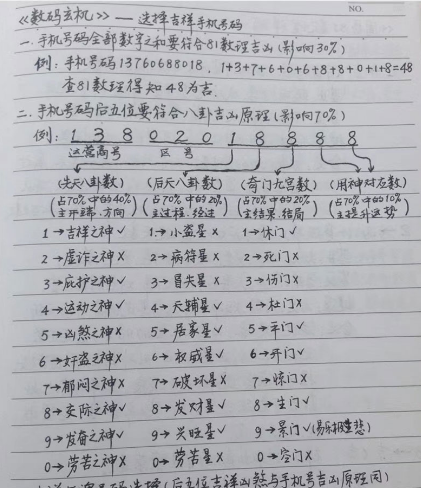 NO.
《数码玄机》——选择吉祥手机号码
一.手机号码全部数字之和要符合81数理吉凶(影响30%)
例:手机号码13760688018,1+3+7+6+0+6+8+8+0+1+8=48
查81数理得知48为吉.
二.手机号码后五位要符合八卦吉凶原理(影响70%)
例:1 3 8 0 2 0 1 8 8 8 8
运营商号 区号
(先天八卦数) (后天八卦数) (奇门九宫数) (用神对应数)
(占70%中的40%) (占70%中的20%) (占70%中的20%) (占70%中的10%)
主开端.方向 主过程.经过 主结果.结局 主提升运势
1→吉祥之神✓ 1→小盗星✗ 1→休门✓
2→虚诈之神✗ 2→病符星✗ 2→死门✗
3→庇护之神✓ 3→冒失星✗ 3→伤门✗
4→运动之神✓ 4→天辅星✓ 4→杜门✗
5→凶煞之神✗ 5→居家星✓ 5→平门✓
6→奸盗之神✗ 6→权威星✓ 6→开门✓
7→郁闷之神✗ 7→破坏星✗ 7→惊门✗
8→交际之神✓ 8→发财星✓ 8→生门✓
9→发奋之神✓ 9→兴旺星✓ 9→景门✓(易乐极生悲)
0→劳苦之神✗ 0→劳苦星✗ 0→空门✗
号码选择(后五位吉祥凶煞与手机号吉凶原理同)